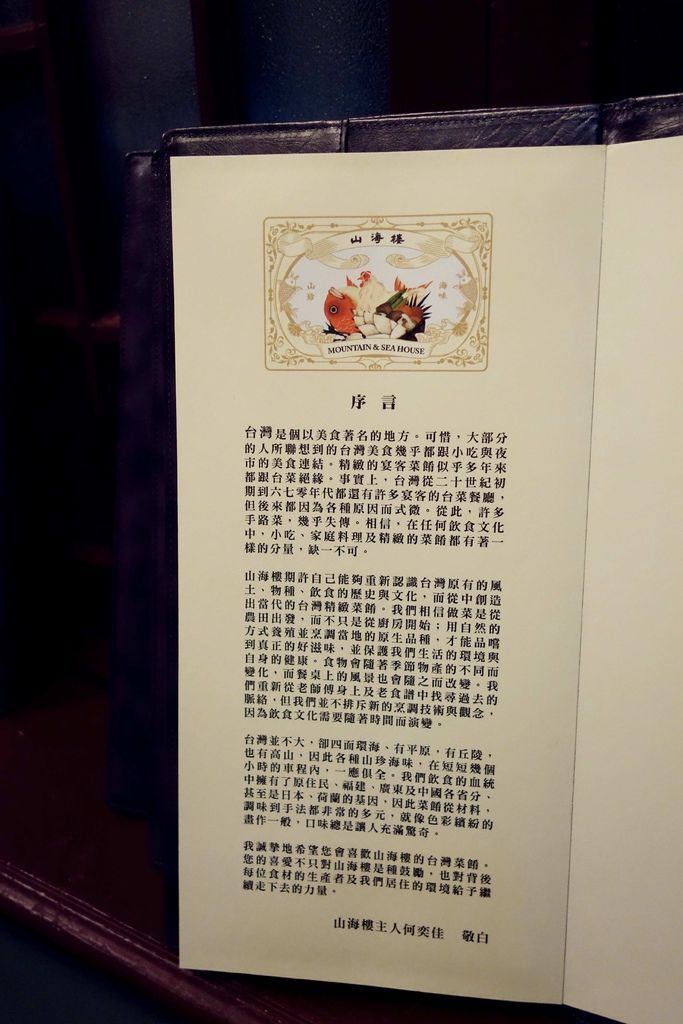 山海樓
山珍
海味
MOUNTAIN & SEA HOUSE
序言
台灣是個以美食著名的地方。可惜，大部分
的人所聯想到的台灣美食幾乎都跟小吃與夜
市的美食連結。精緻的宴客菜餚似乎多年來
都跟台菜絕緣。事實上，台灣從二十世紀初
期到六七零年代都還有許多宴客的台菜餐廳，
但後來都因為各種原因而式微。從此，許多
手路菜，幾乎失傳。相信，在任何飲食文化
中，小吃、家庭料理及精緻的菜餚都有著一
樣的分量，缺一不可。
山海樓期許自己能夠重新認識台灣原有的風
土、物種、飲食的歷史與文化，而從中創造
出當代的台灣精緻菜餚。我們相信做菜是從
農田出發，而不只是從廚房開始；用自然的
方式養殖並烹調當地的原生品種，才能品嚐
到真正的好滋味，並保護我們生活的環境與
自身的健康。食物會隨著季節物產的不同而
變化，而餐桌上的風景也會隨之而改變。我
們重新從老師傅身上及老食譜中找尋過去的
脈絡，但我們並不排斥新的烹調技術與觀念，
因為飲食文化需要隨著時間而演變。
台灣並不大，卻四面環海、有平原，有丘陵，
也有高山，因此各種山珍海味，在短短幾個
小時的車程內，一應俱全。我們飲食的血統
中擁有了原住民、福建、廣東及中國各省分、
甚至是日本、荷蘭的基因，因此菜餚從材料，
調味到手法都非常的多元，就像色彩繽紛的
畫作一般，口味總是讓人充滿驚奇。
我誠摯地希望您會喜歡山海樓的台灣菜餚。
您的喜愛不只對山海樓是種鼓勵，也對背後
每位食材的生產者及我們居住的環境給予繼
續走下去的力量。
山海樓主人何奕佳 敬白